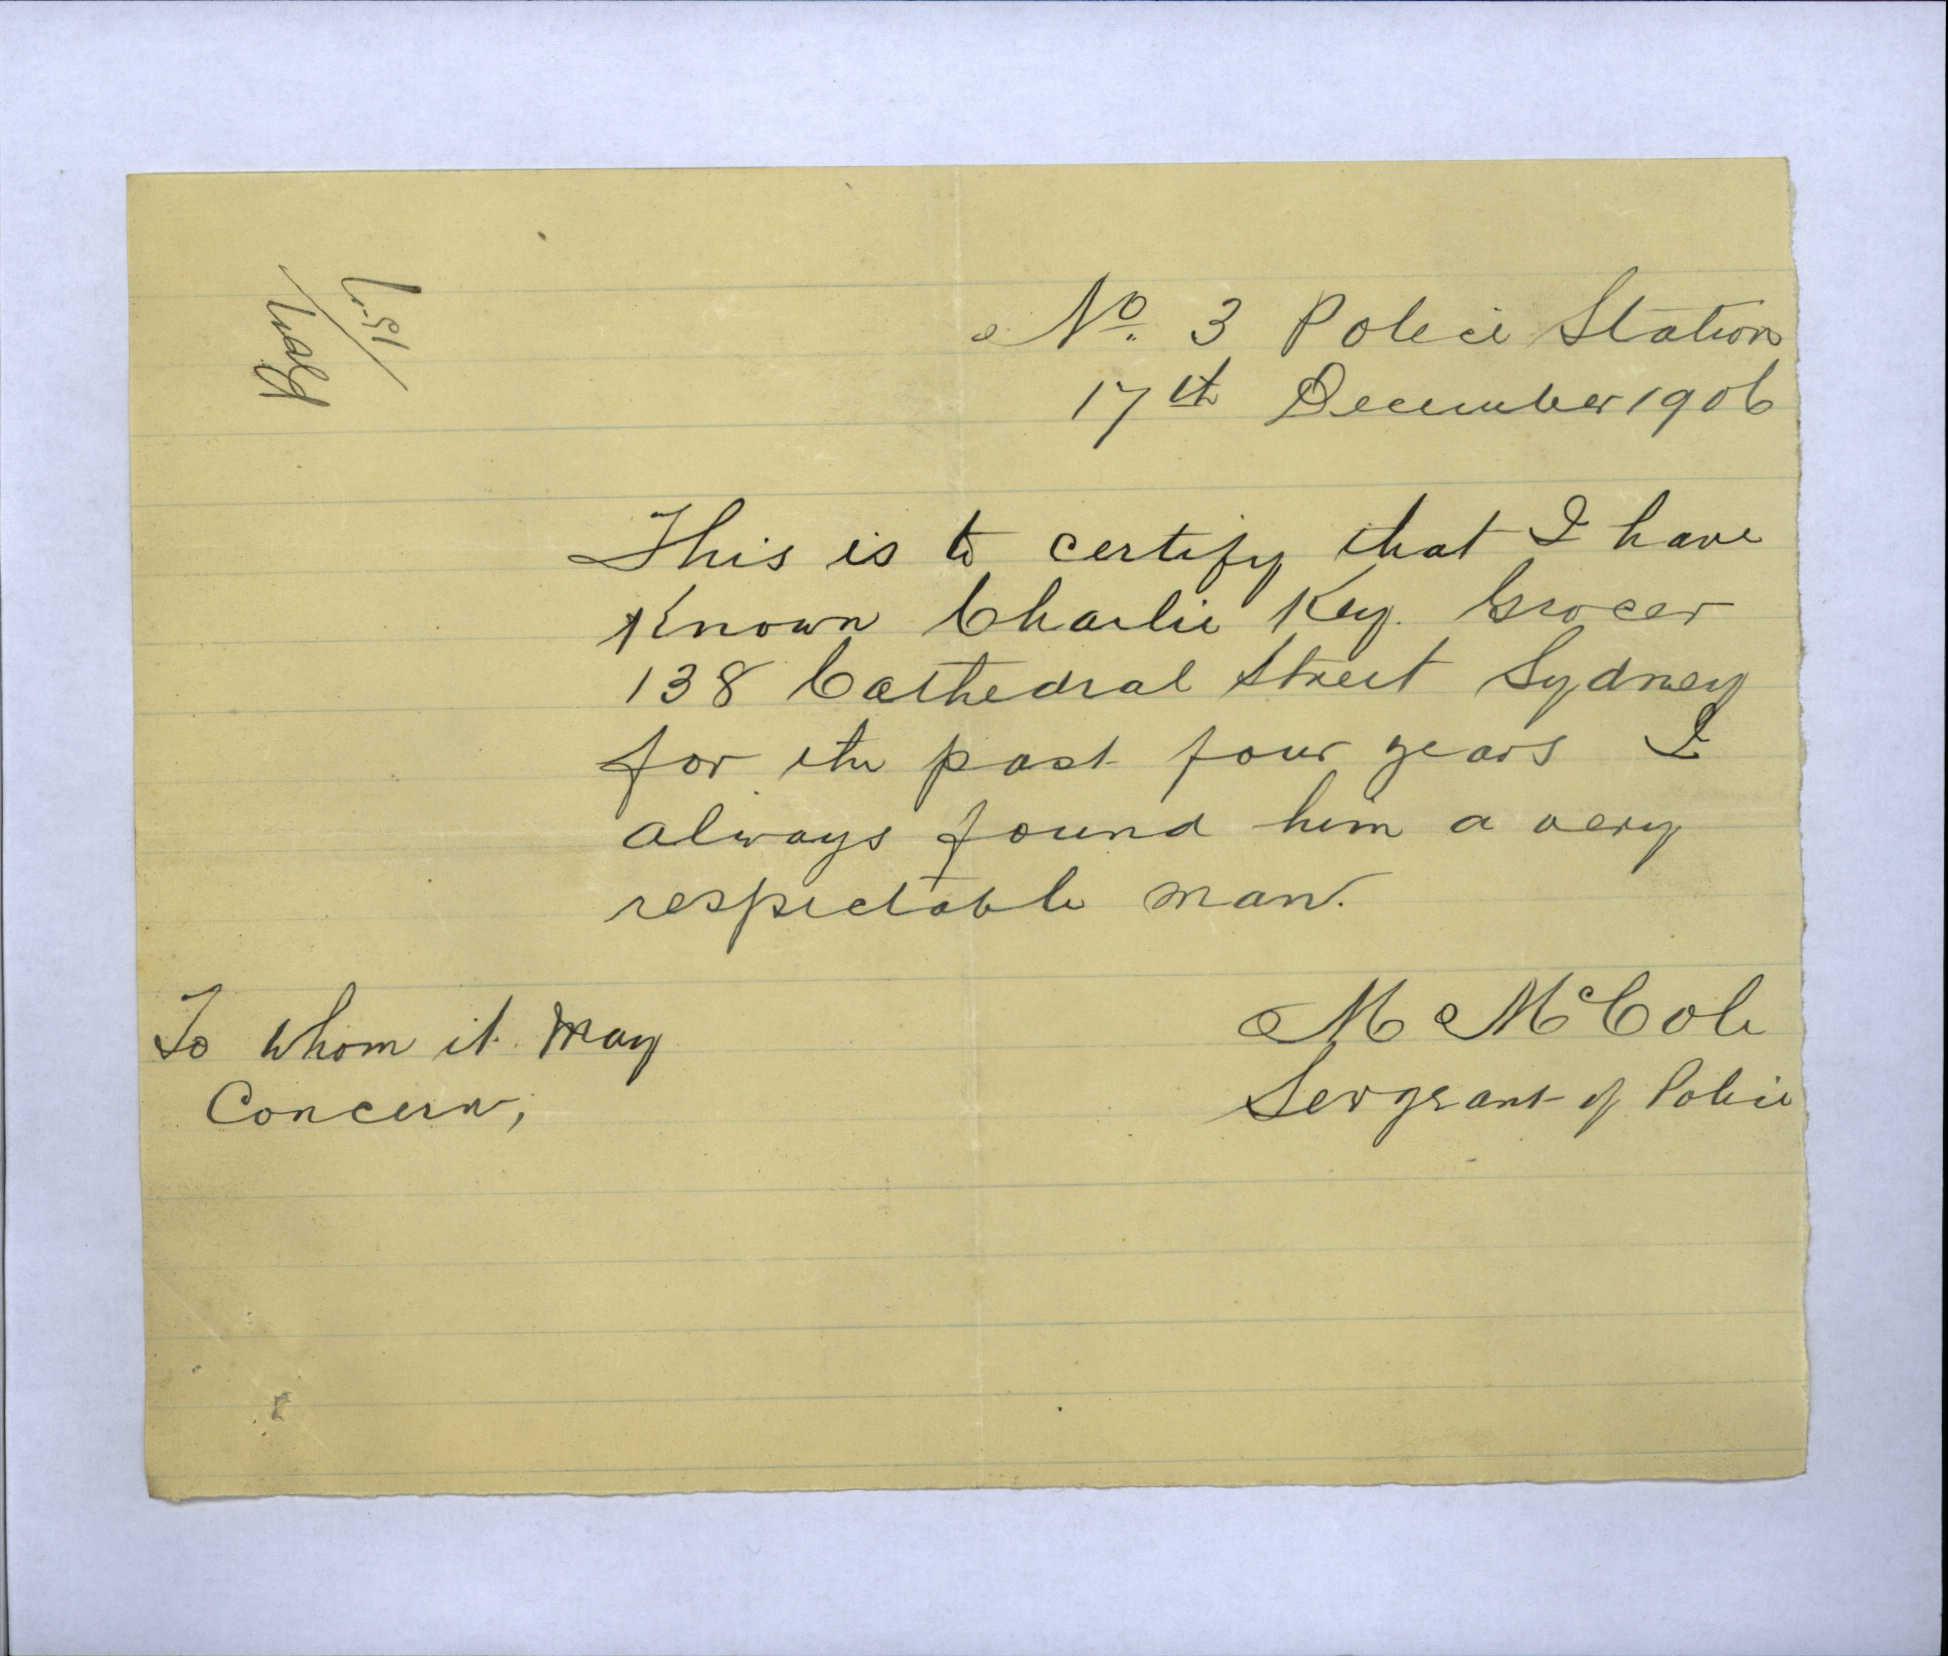 No. 3 Police Station
17th December 1906
This is to certify that I have
Known Charlie Key. Grocer
138 Cathedral Street Sydney
for the past four years I
always found him a very
respectable man.
M McCole
Sergeant of Police
To whom it May
Concern,